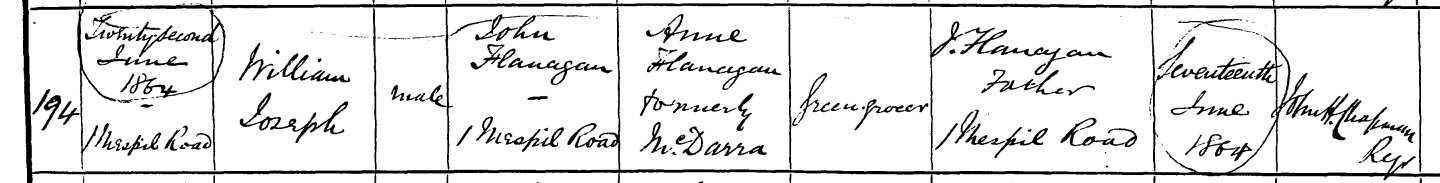 194
Twentysecond
June
1864
–
1 Mespil Road
William
Joseph
male
John
Flanagan
–
1 Mespil Road
Anne
Flanagan
formerly
McDarra
Greengrocer
J. Flanagan
Father
1 Mespil Road
Seventeenth
June
1864
John H. Chapman
Regr